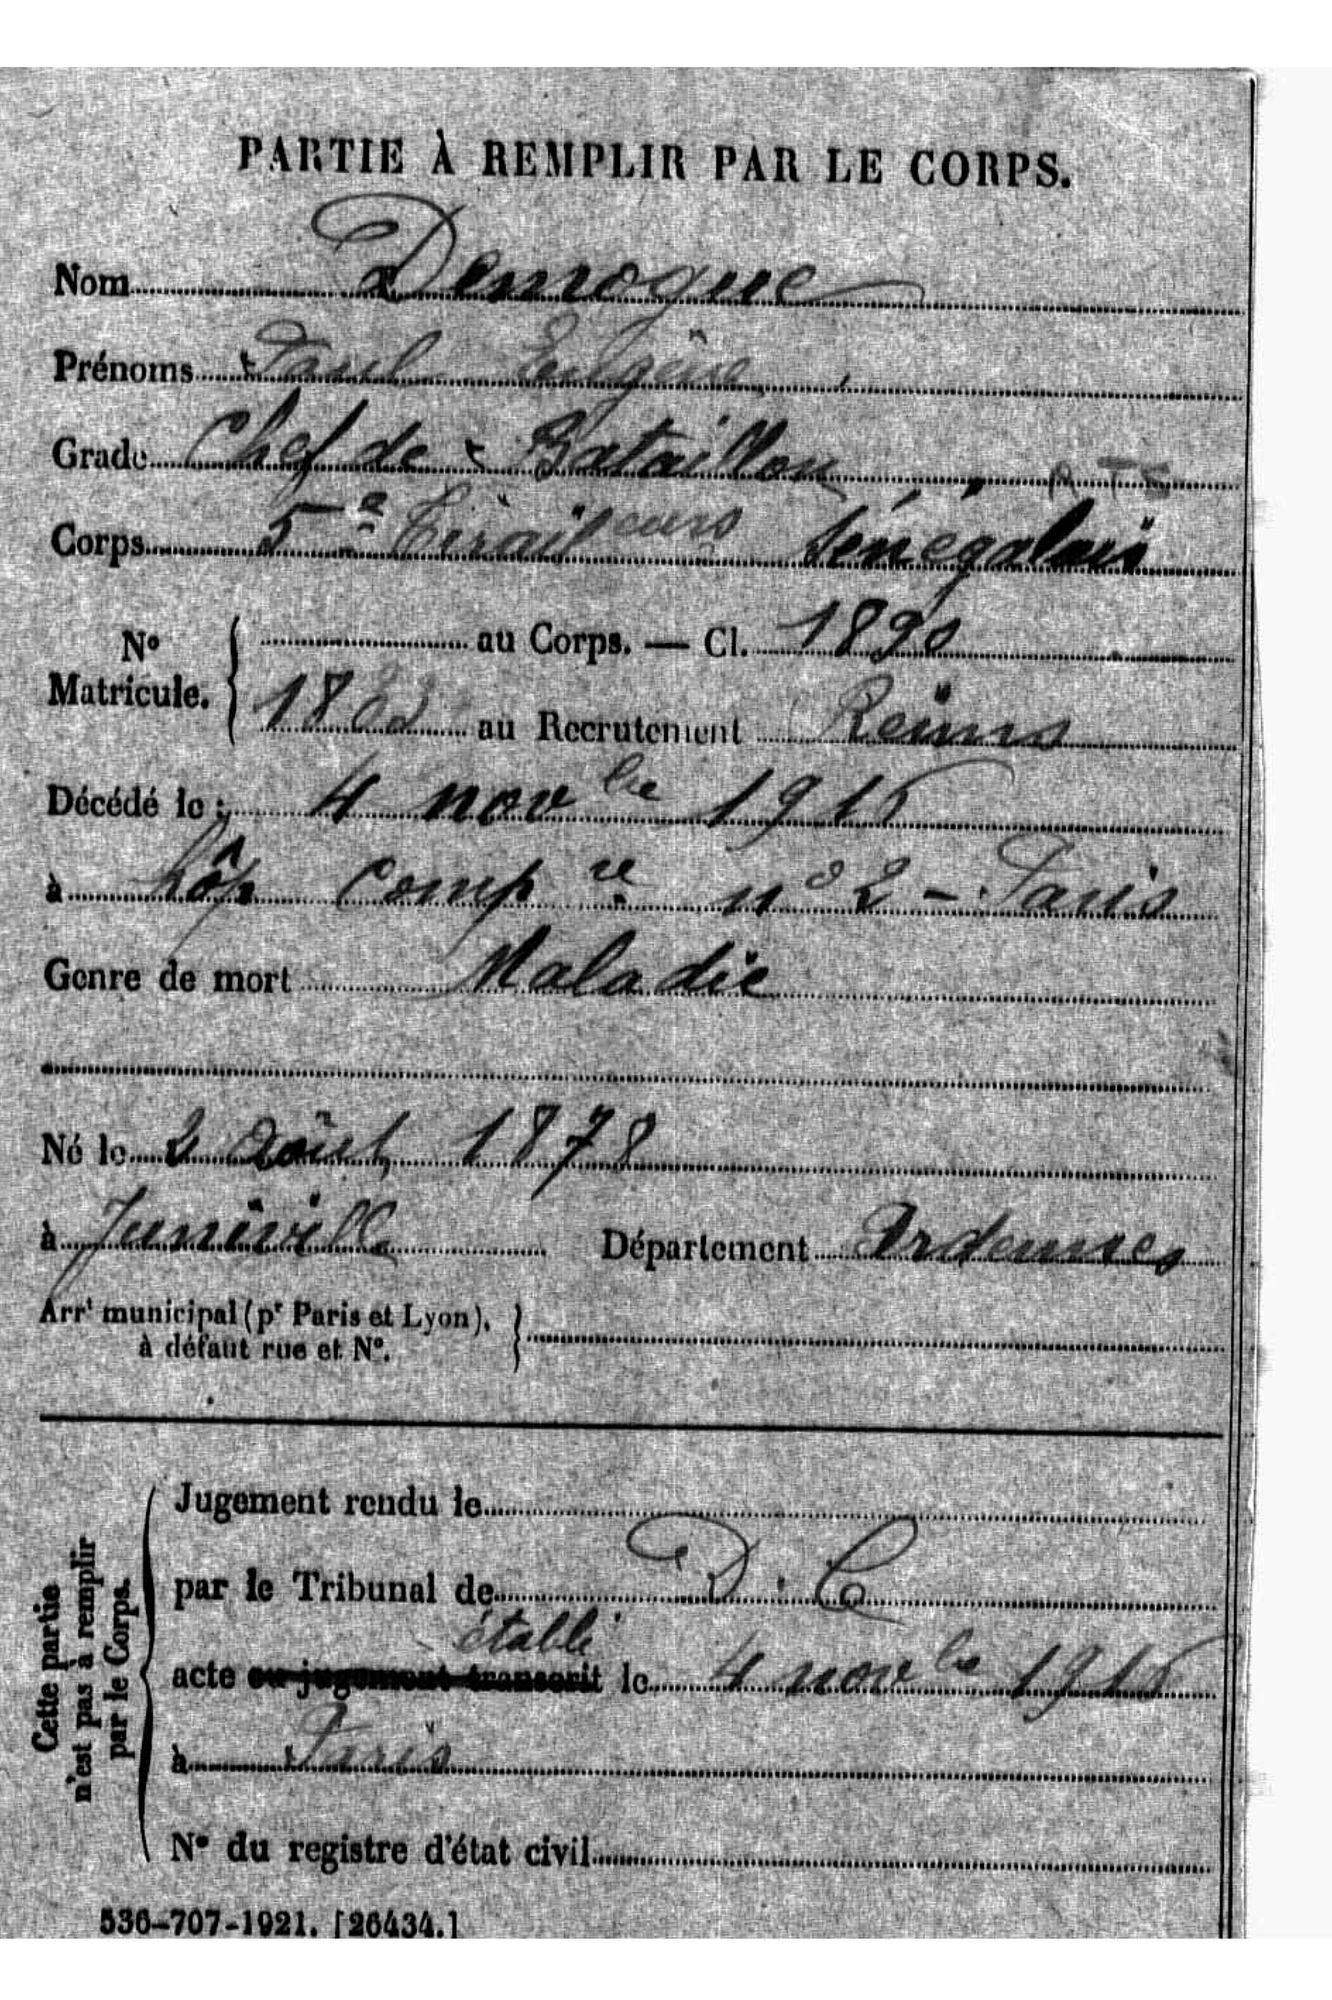 PARTIE À REMPLIR PAR LE CORPS.
Nom Demogue
Prénoms Paul Eugène
Grade Chef de Bataillon
R T S
Corps 5e Tirailleurs Sénégalais
No Matricule. au Corps. — Cl. 1890
au Recrutement Reims
Décédé le : 4 novbre 1916
à hôp compre no 2 - Paris
Genre de mort Maladie
Né le 2 août 1878
à Juniville Département Ardennes
Arrt municipal (pr Paris et Lyon),
à défaut rue et No.
Cette partie
n'est pas à remplir
par le Corps.
Jugement rendu le
par le Tribunal de D. C
établi
acte ou jugement transcrit le 4 novbre 1916
à Paris
No du registre d'état civil
536-707-1921. [26434.]